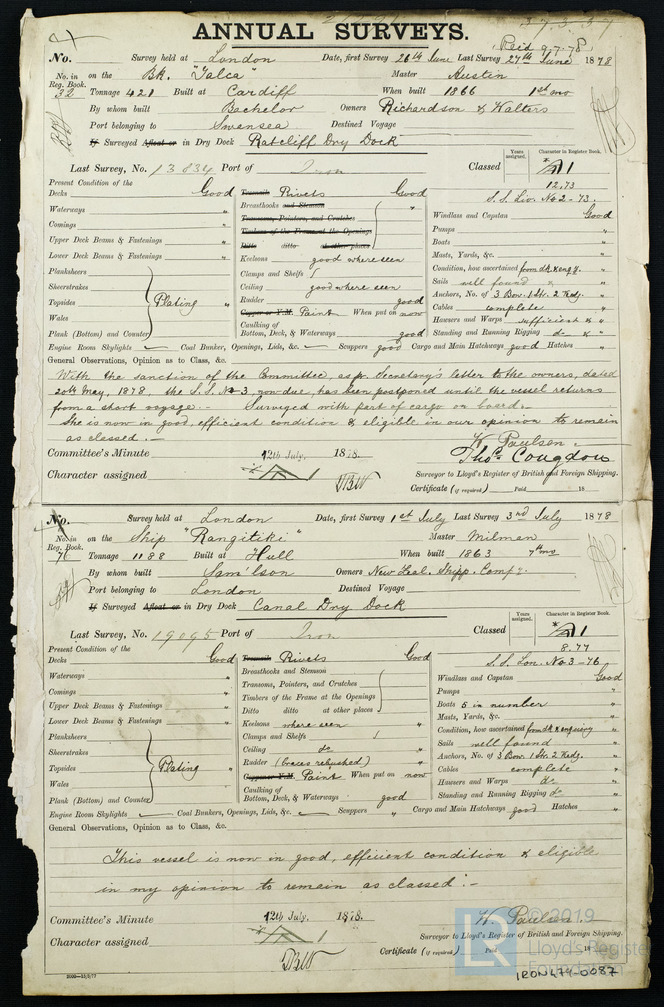 ANNUAL SURVEYS.
Reid 9.7.78
No. Survey held at London Date, first Survey 26th June Last Survey 27th June 1878
No. in Reg. Book. 32 on the Bk. "Talca" Master Austin
Tonnage 421 Built at Cardiff When built 1866 1st mo
By whom built Bachelor Owners Richardson & Walters
Port belonging to Swansea Destined Voyage
If Surveyed Afloat or in Dry Dock Ratcliff Dry Dock
Last Survey, No. 13834 Port of Iron Classed
Years assigned. Character in Register Book.
A 1
12,73
S.S. Liv. No 2 - 73.
Present Condition of the
Decks Good
Waterways "
Comings "
Upper Deck Beams & Fastenings "
Lower Deck Beams & Fastenings "
Planksheers
Sheerstrakes
Topsides Plating "
Wales
Plank (Bottom) and Counter
Treenails Rivets Good
Breasthooks and Stemson "
Transoms, Pointers, and Crutches
Timbers of the Frame at the Openings
Ditto ditto at other places
Keelsons good where seen
Clamps and Shelfs
Ceiling good where seen
Rudder good
Copper or Y.M. Paint When put on now
Caulking of Bottom, Deck, & Waterways good
Windlass and Capstan Good
Pumps "
Boats "
Masts, Yards, &c. "
Condition, how ascertained from dk & enqy. "
Sails well found "
Anchors, No. of 3 Bow. 1 Str. 2 Kedg. "
Cables complete "
Hawsers and Warps sufficient & "
Standing and Running Rigging do & "
Engine Room Skylights Coal Bunker, Openings, Lids, &c. Scuppers good Cargo and Main Hatchways good Hatches "
General Observations, Opinion as to Class, &c.
With the sanction of the Committee, as p. Secretary's letter to the owners, dated
20th May, 1878 the S.S. No 3, now due, has been postponed until the vessel returns
from a short voyage. - Surveyed with part of cargo on board. -
She is now in good, efficient condition & eligible in our opinion to remain
as classed. -
W. Paulsen
Thos. Congdon
Committee's Minute 12th July. 1878.
Character assigned A 1
Surveyor to Lloyd's Register of British and Foreign Shipping.
Certificate (if required) Paid 18
No. Survey held at London Date, first Survey 1st July Last Survey 3rd July 1878
No. in Reg. Book. on the Ship "Rangitiki" Master Milman
Tonnage 1188 Built at Hull When built 1863 7th mo
By whom built Sam'lson Owners New Zeal. Shipp. Compy.
Port belonging to London Destined Voyage
If Surveyed Afloat or in Dry Dock Canal Dry Dock
Last Survey, No. 19095 Port of Iron Classed
Years assigned. Character in Register Book.
A 1
8.77
S.S. Lon. No 3 - 76
Present Condition of the
Decks Good
Waterways "
Comings "
Upper Deck Beams & Fastenings "
Lower Deck Beams & Fastenings "
Planksheers
Sheerstrakes
Topsides Plating "
Wales
Plank (Bottom) and Counter
Treenails Rivets Good
Breasthooks and Stemson
Transoms, Pointers, and Crutches
Timbers of the Frame at the Openings
Ditto ditto at other places
Keelsons where seen "
Clamps and Shelfs
Ceiling do "
Rudder (braces rebushed) "
Copper or Y.M. Paint When put on now
Caulking of Bottom, Deck, & Waterways good
Windlass and Capstan Good
Pumps "
Boats 5 in number "
Masts, Yards, &c. "
Condition, how ascertained from dk & enquiry "
Sails well found "
Anchors, No. of 3 Bow. 1 Str. 2 Kedg. "
Cables complete "
Hawsers and Warps do "
Standing and Running Rigging do "
Engine Room Skylights Coal Bunkers, Openings, Lids, &c. Scuppers " Cargo and Main Hatchways good Hatches "
General Observations, Opinion as to Class, &c.
This vessel is now in good, efficient condition & eligible
in my opinion to remain as classed. -
Committee's Minute 12th July. 1878.
W. Paulsen.
Character assigned A 1
Surveyor to Lloyd's Register of British and Foreign Shipping.
Certificate (if required) Paid 18
2000-13/9/77
© 2019
Lloyd's Register
IRON474-0087